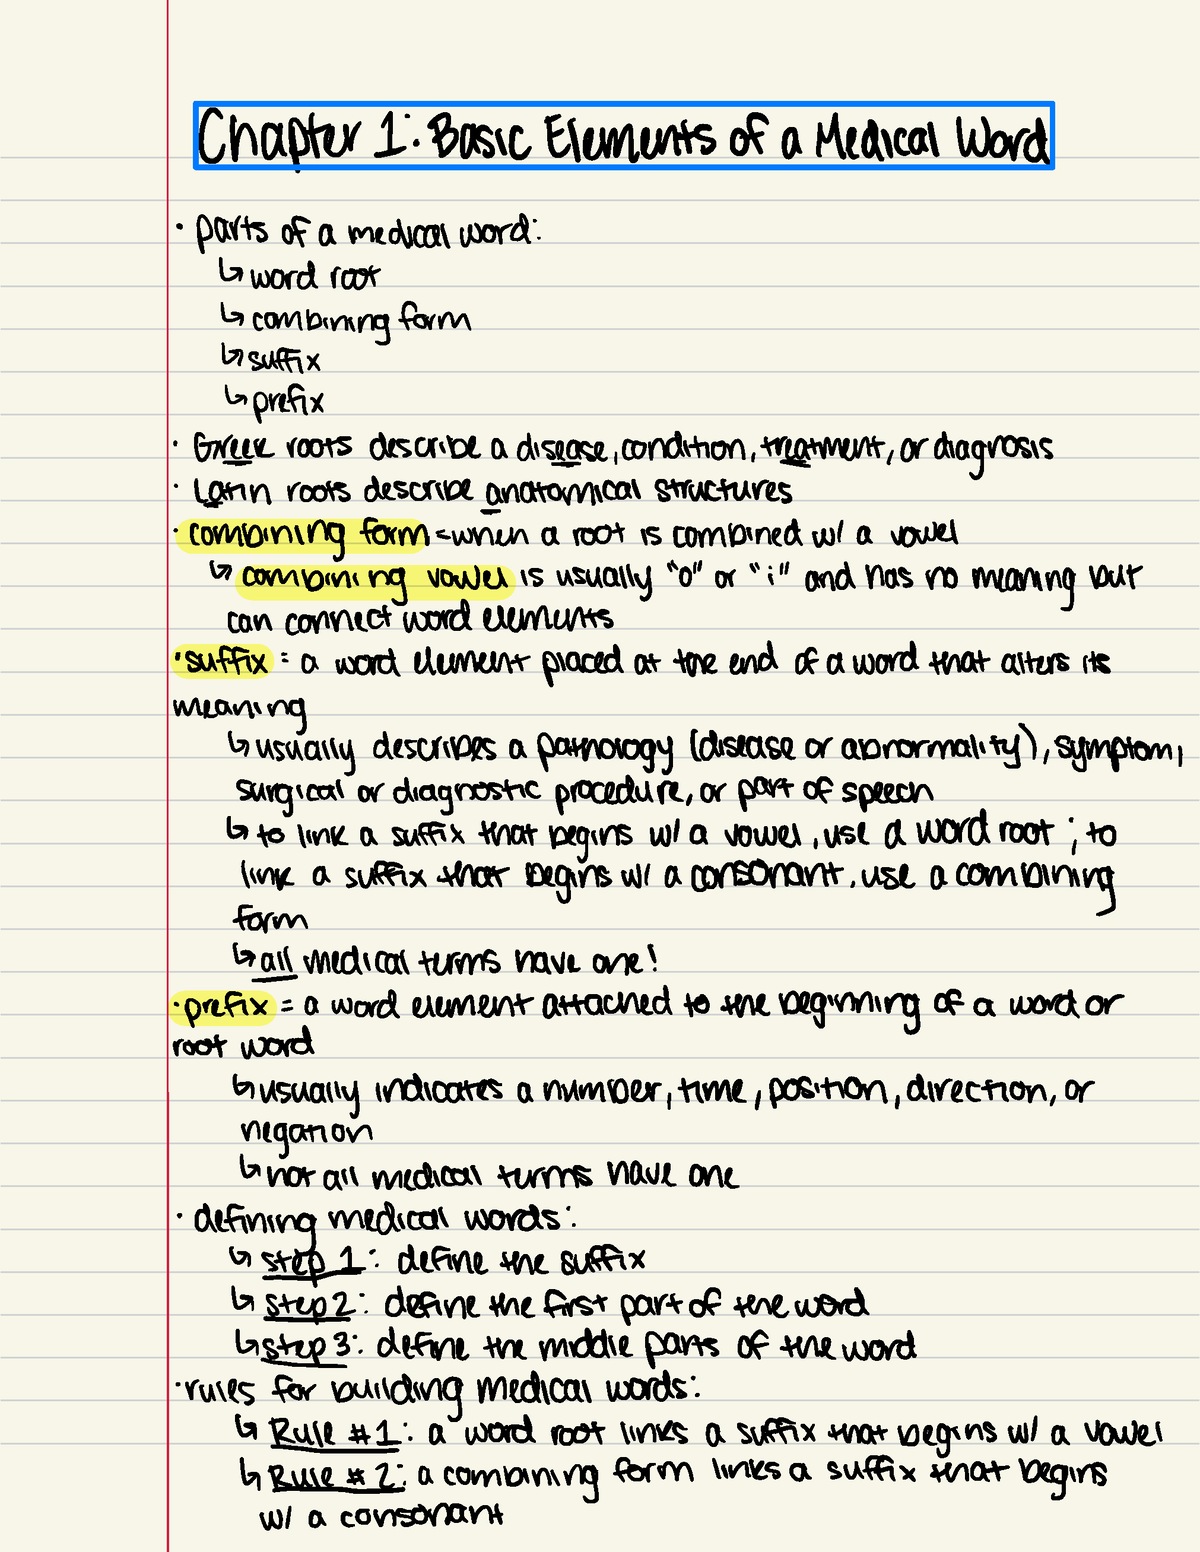 Chapter 1: Basic Elements of a Medical Word
· parts of a medical word:
↳ word root
↳ combining form
↳ suffix
↳ prefix
· Greek roots describe a disease, condition, treatment, or diagnosis
· Latin roots describe anatomical structures
· combining form = when a root is combined w/ a vowel
↳ combining vowel is usually "o" or "i" and has no meaning but
can connect word elements
· suffix = a word element placed at the end of a word that alters its
meaning
↳ usually describes a pathology (disease or abnormality), symptom,
surgical or diagnostic procedure, or part of speech
↳ to link a suffix that begins w/ a vowel, use a word root ; to
link a suffix that begins w/ a consonant, use a combining
form
↳ all medical terms have one!
· prefix = a word element attached to the beginning of a word or
root word
↳ usually indicates a number, time, position, direction, or
negation
↳ not all medical terms have one
· defining medical words:
↳ step 1: define the suffix
↳ step 2: define the first part of the word
↳ step 3: define the middle parts of the word
· rules for building medical words:
↳ Rule #1: a word root links a suffix that begins w/ a vowel
↳ Rule #2: a combining form links a suffix that begins
w/ a consonant